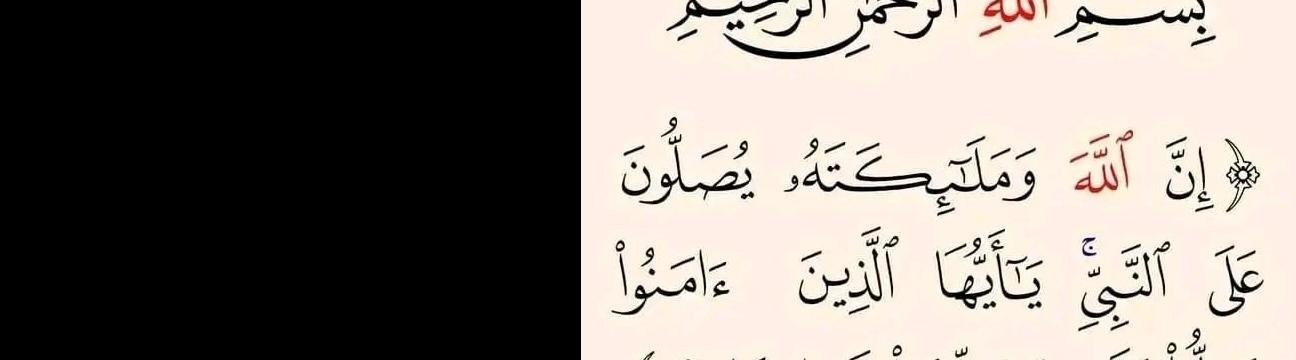 بِسْمِ ٱللَّهِ ٱلرَّحْمَٰنِ ٱلرَّحِيمِ
﴿ إِنَّ ٱللَّهَ وَمَلَٰٓئِكَتَهُۥ يُصَلُّونَ
عَلَى ٱلنَّبِيِّۚ يَٰٓأَيُّهَا ٱلَّذِينَ ءَامَنُوا۟